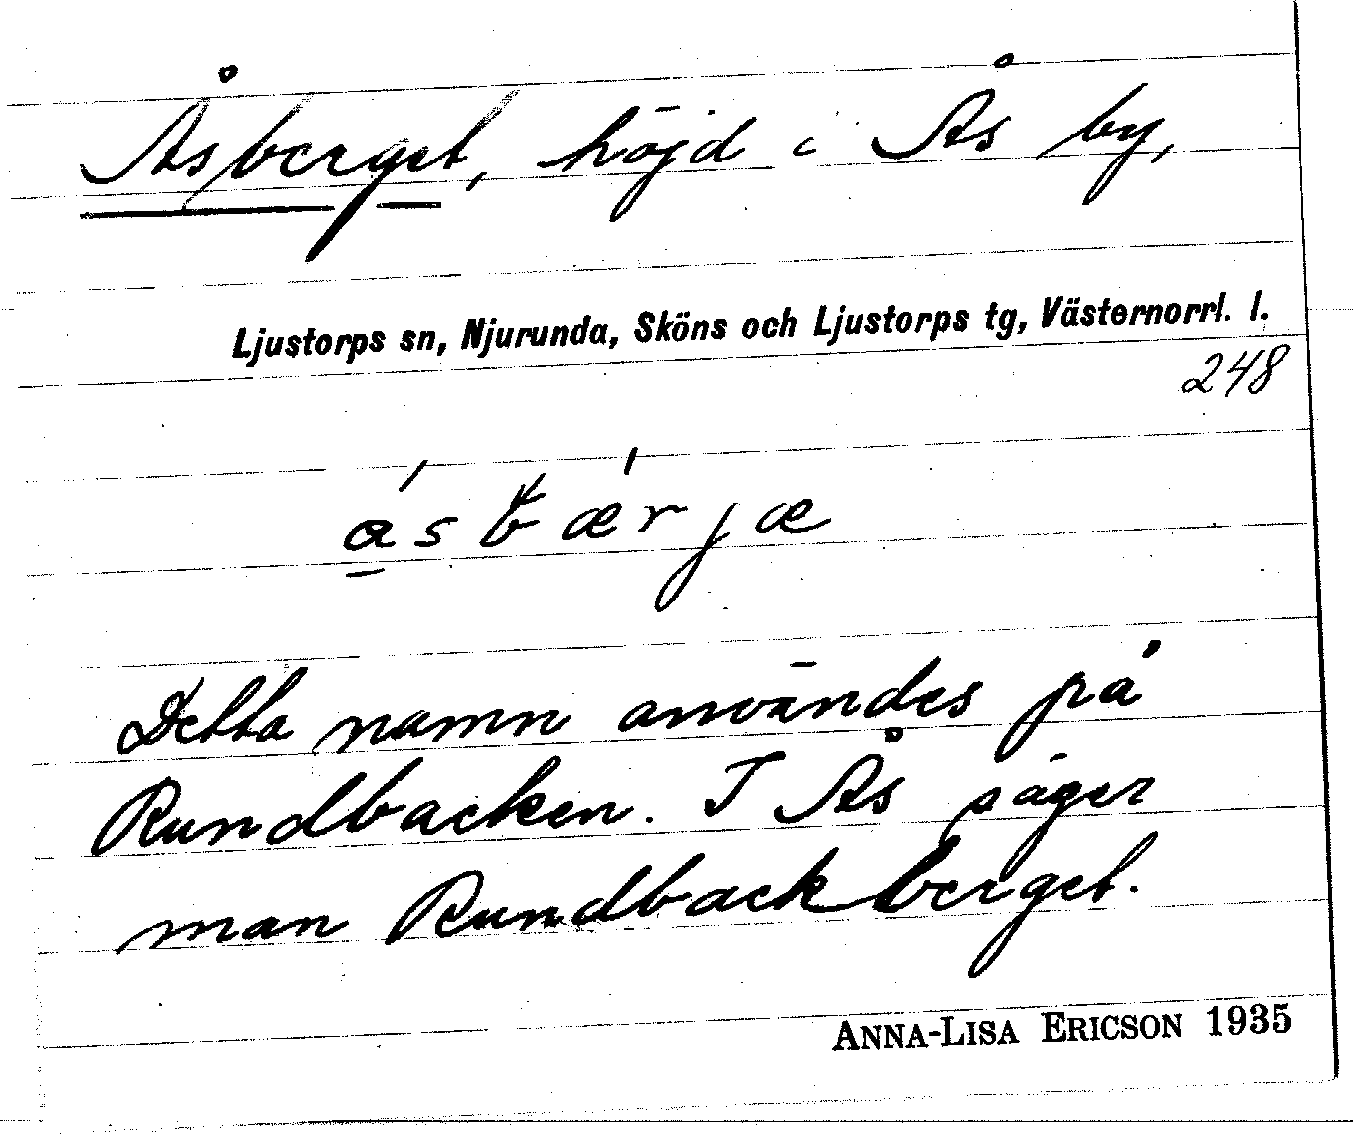 Åsberget, höjd i Ås by,
Ljustorps sn, Njurunda, Sköns och Ljustorps tg, Västernorrl. l.
248
ásbǽrjæ
Detta namn användes på
Rundbacken. I Ås säger
man Rundbackberget.
ANNA-LISA ERICSON 1935